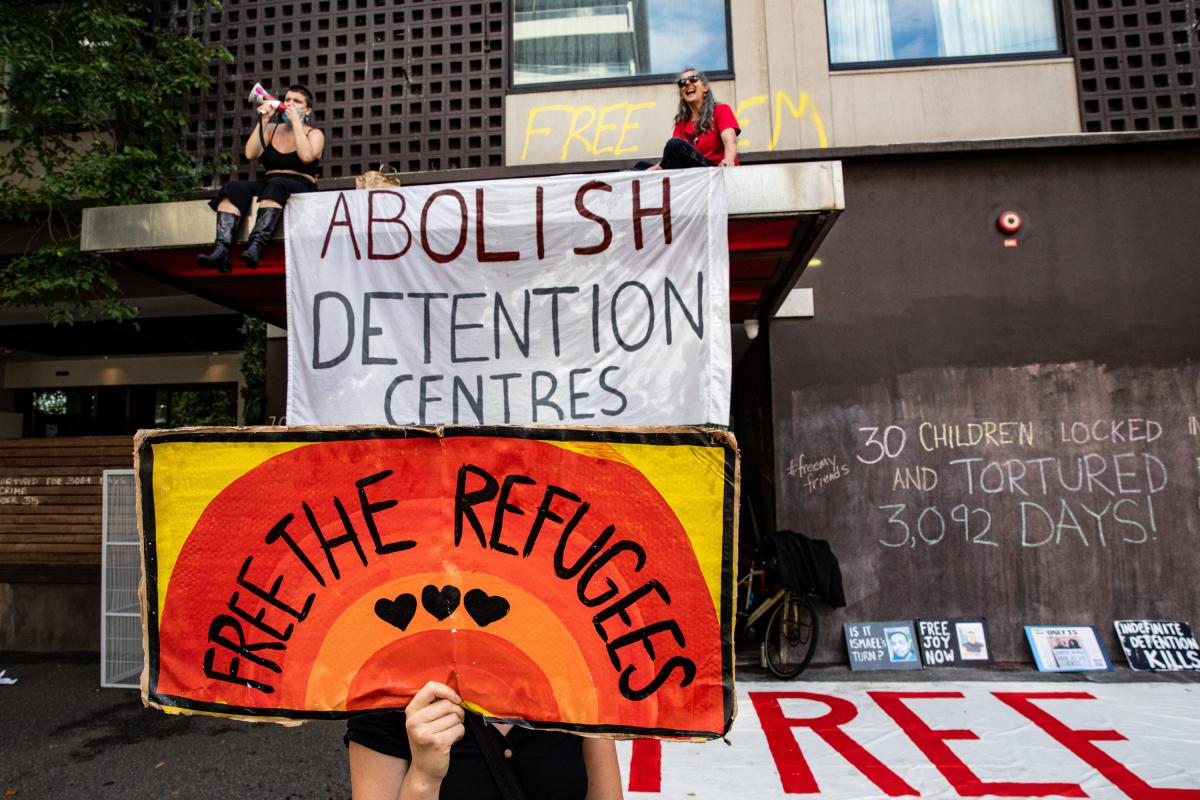 FREE EM
ABOLISH
DETENTION
CENTRES
FREE THE REFUGEES
30 CHILDREN LOCKED
AND TORTURED
3,092 DAYS!
#freemy
friends
IS IT
ISMAEL'S
TURN?
FREE
JOY
NOW
ONLY 15
INDEFINITE
DETENTION
KILLS
FREE